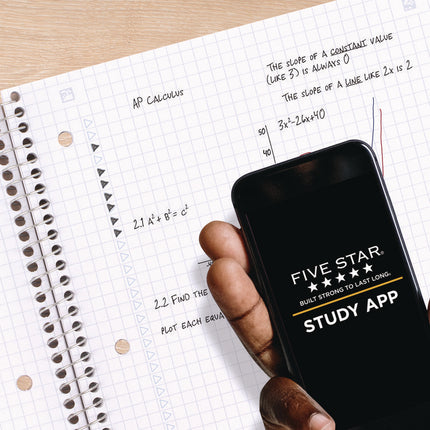 THE SLOPE OF A CONSTANT VALUE
(LIKE 3) IS ALWAYS 0
AP CALCULUS
THE SLOPE OF A LINE LIKE 2x IS 2
50
3x²-26x+40
40
2.1 A² + B² = C²
2.2 FIND THE
PLOT EACH EQUA
FIVE STAR®
BUILT STRONG TO LAST LONG™
STUDY APP